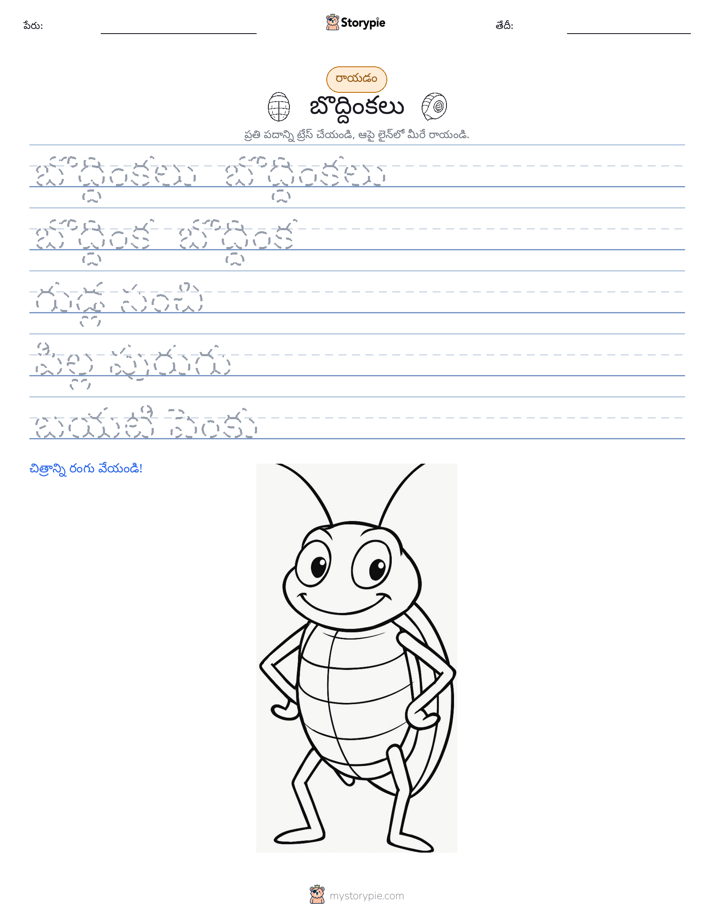 పేరు:
Storypie
తేదీ:
రాయడం
బొద్దింకలు
ప్రతి పదాన్ని ట్రేస్ చేయండి, ఆపై లైన్‌లో మీరే రాయండి.
బొద్దింకలు బొద్దింకలు
బొద్దింక బొద్దింక
గుడ్ల సంచి
పిల్ల పురుగు
బయటి పెంకు
చిత్రాన్ని రంగు వేయండి!
mystorypie.com